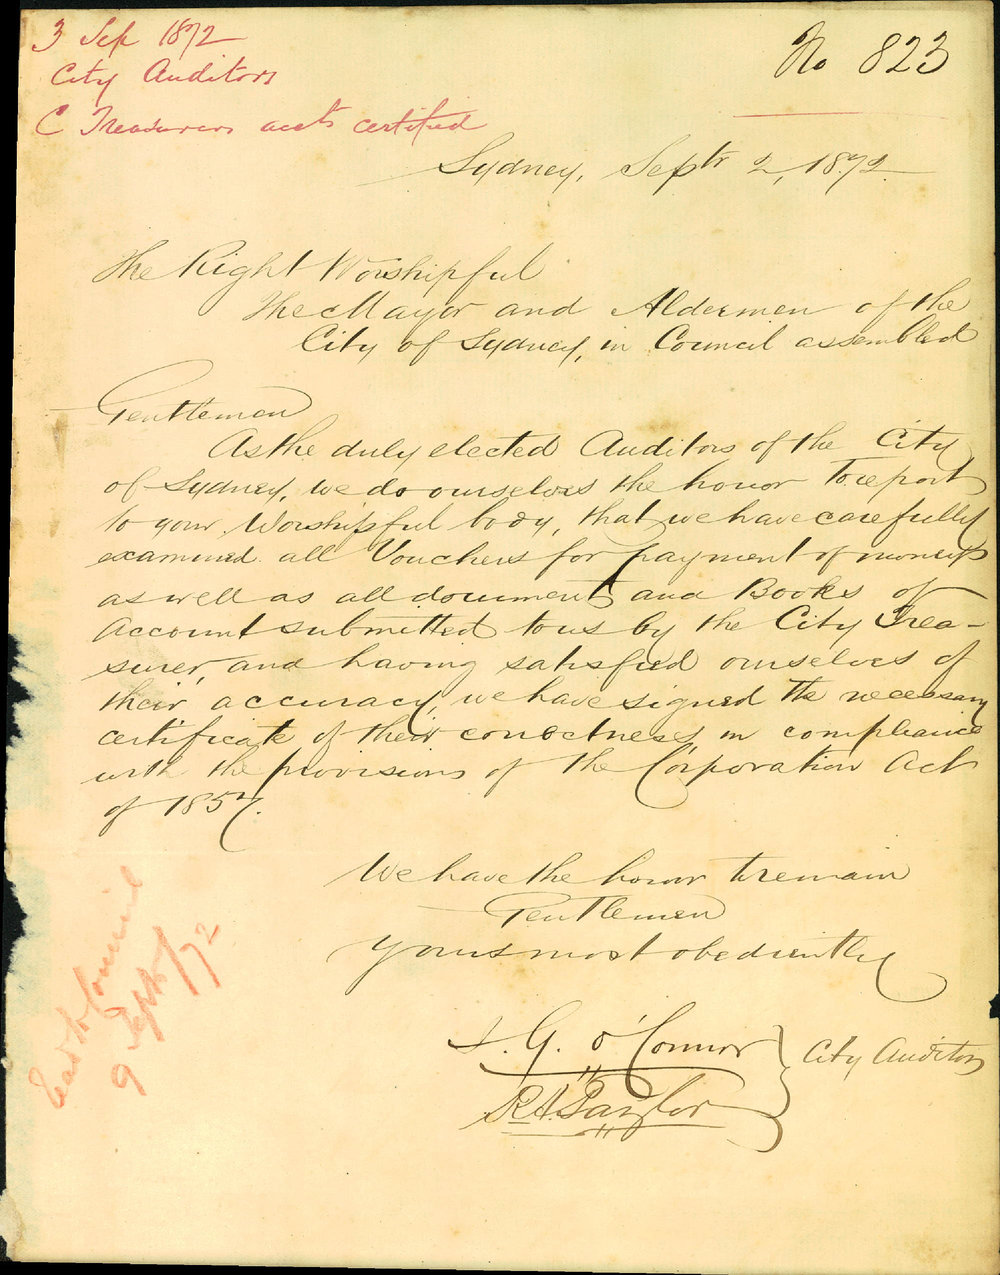 3 Sep 1872
City Auditors
C Treasurers accts certified
No 823
Sydney, Septr 2, 1872
The Right Worshipful
The Mayor and Aldermen of the
City of Sydney, in Council assembled
Gentlemen
As the duly elected Auditors of the City
of Sydney, we do ourselves the honor to report
to your Worshipful body, that we have carefully
examined all Vouchers for payment of moneys
as well as all documents and Books of
Account submitted to us by the City Trea-
surer, and having satisfied ourselves of
their accuracy, we have signed the necessary
certificate of their correctness in compliance
with the provisions of the Corporation Act
of 1857.
We have the honor to remain
Gentlemen
Yours most obediently
J. G. O'Connor
R A. Taylor
City Auditors
Read to Council
9 Sept/72